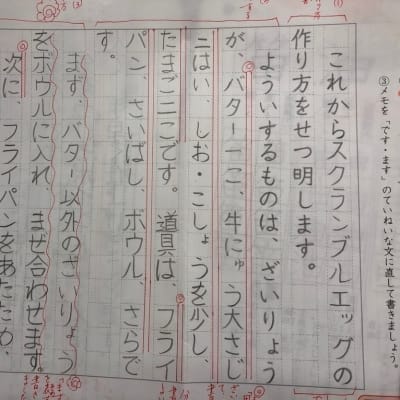 ③メモを「です・ます」のていねいな文に直して書きましょう。
これからスクランブルエッグの
作り方をせつ明します。
よういするものは、ざいりょう
が、バター一こ、牛にゅう大さじ
二はい、しお・こしょうを少し、
たまご二こです。道具は、フライ
パン、さいばし、ボウル、さらで
す。
まず、バター以外のざいりょう
をボウルに入れ、まぜ合わせます。
次に、フライパンをあたため、